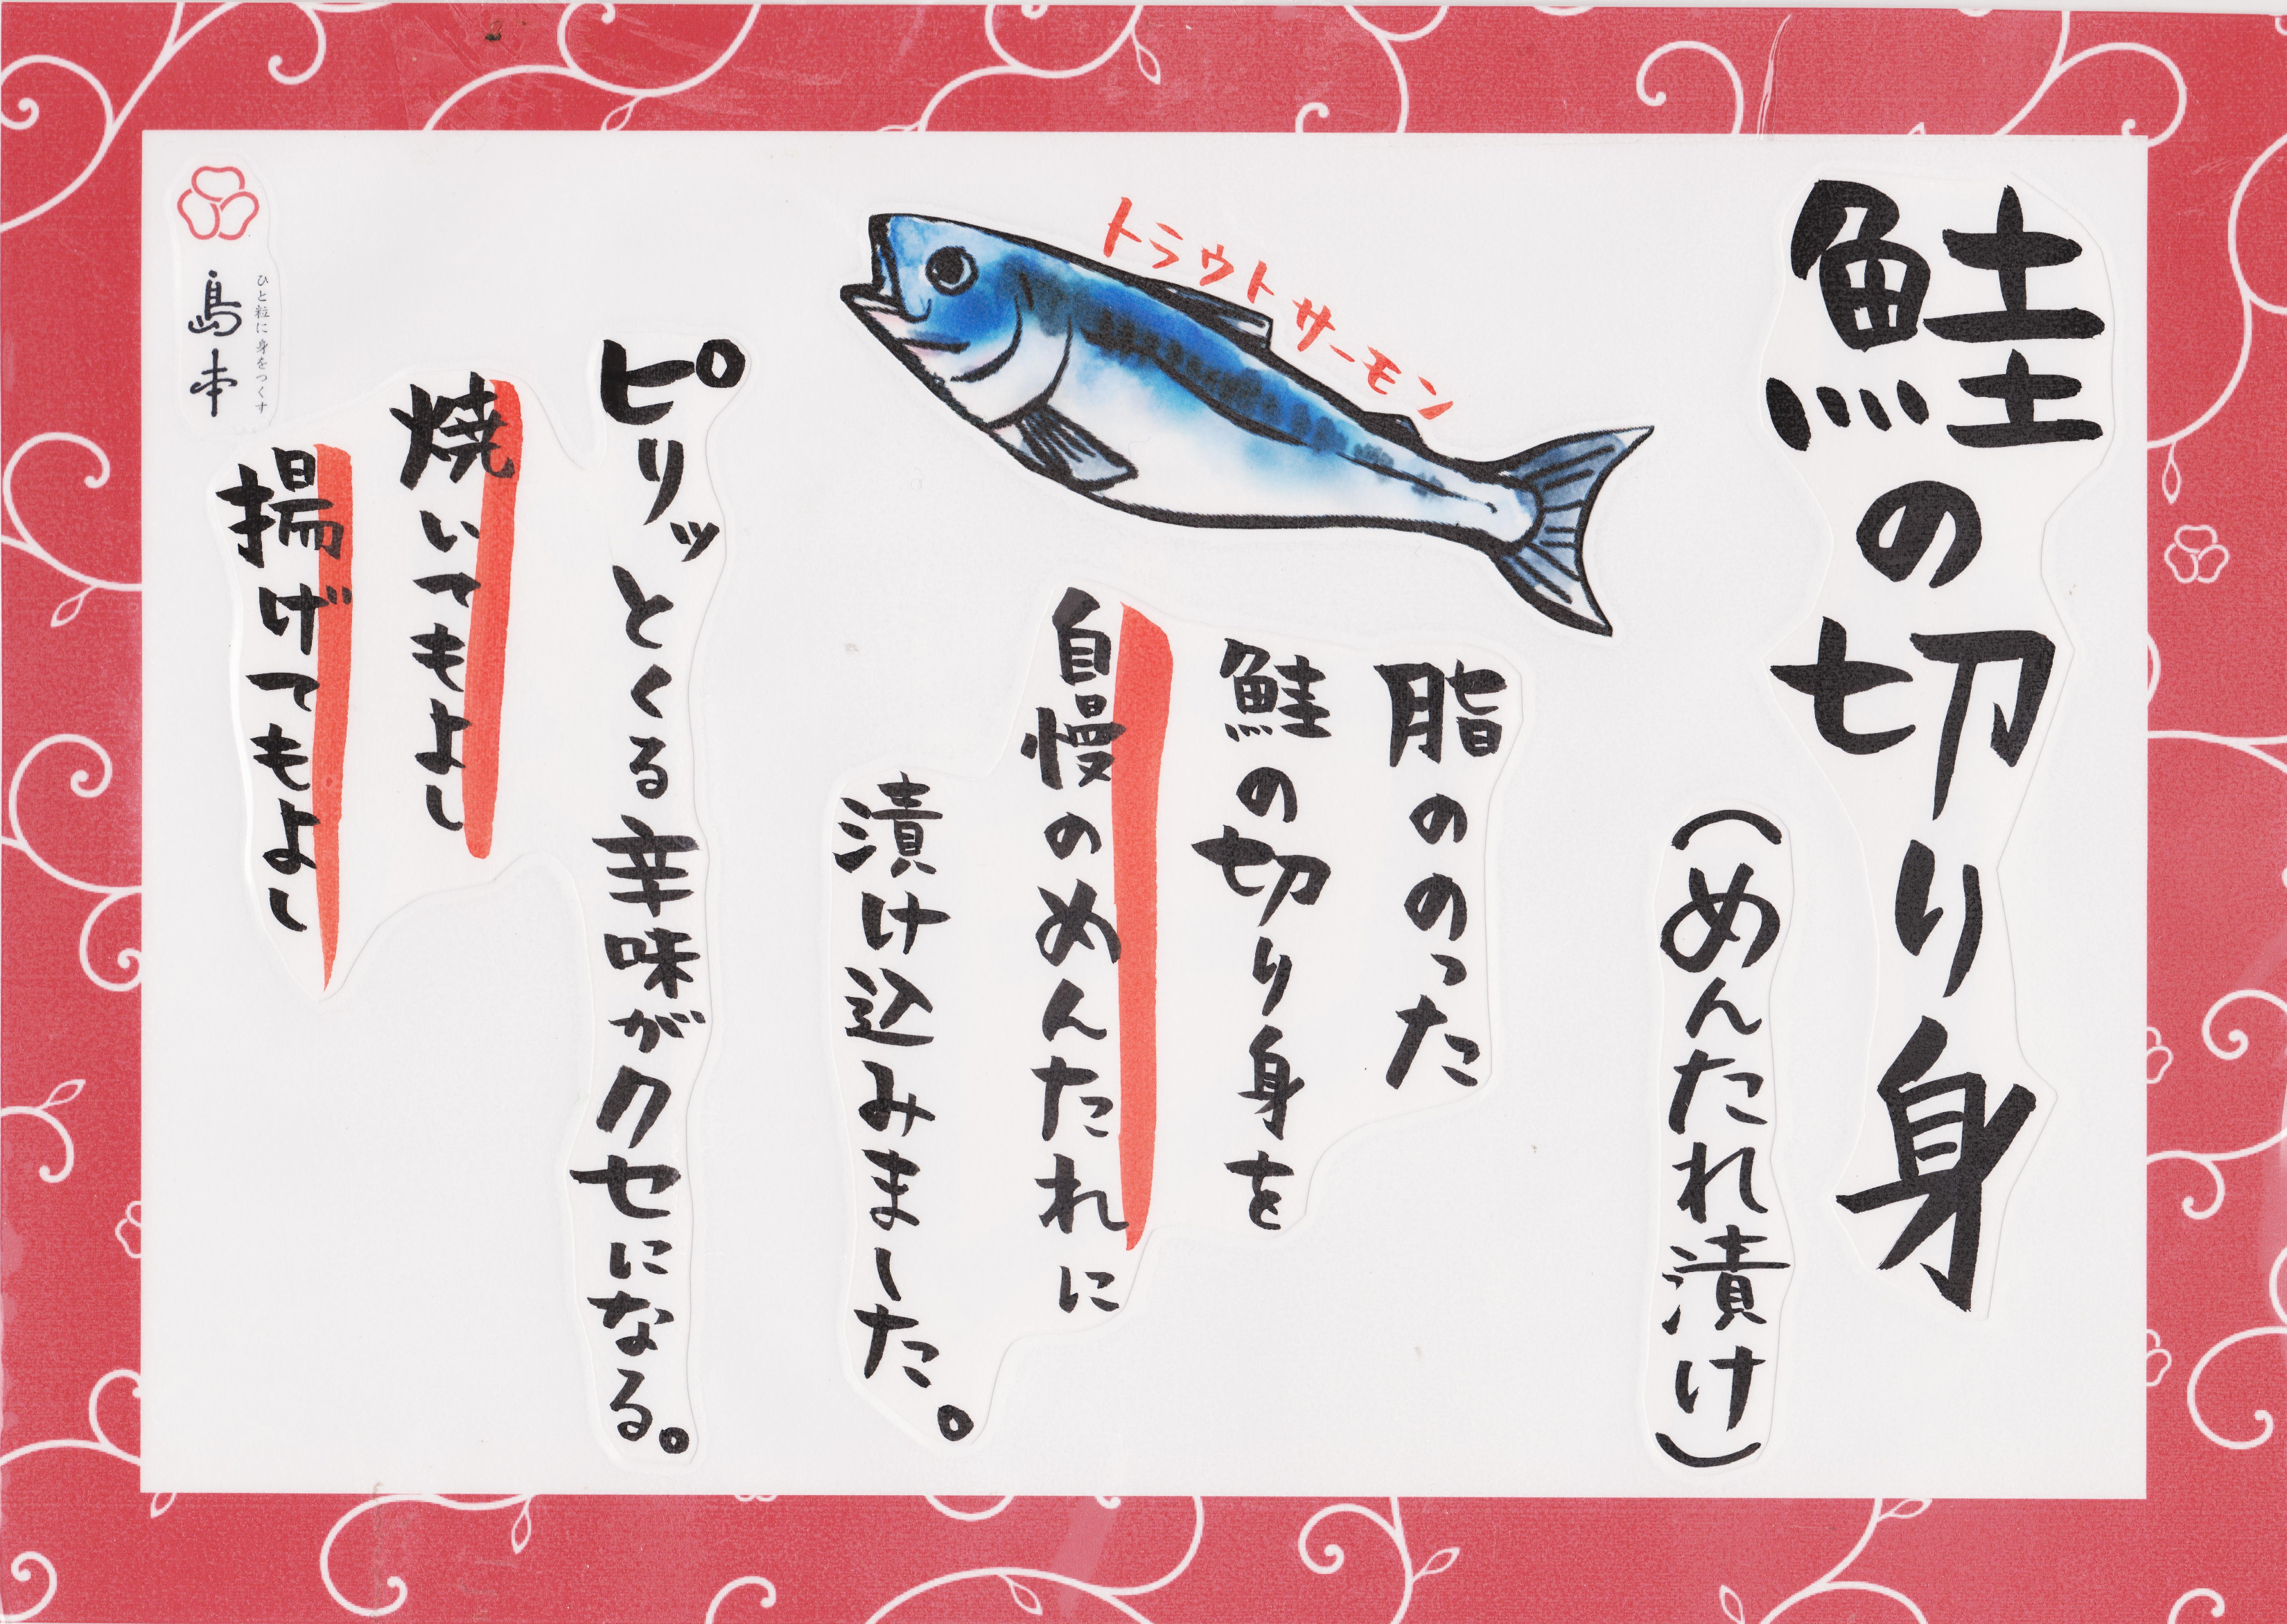 鮭の切り身
(めんたれ漬け)
トラウトサーモン
脂ののった
鮭の切り身を
自慢のめんたれに
漬け込みました。
ピリッとくる辛味がクセになる。
焼いてもよし
揚げてもよし
ひと粒に身をつくす
島本